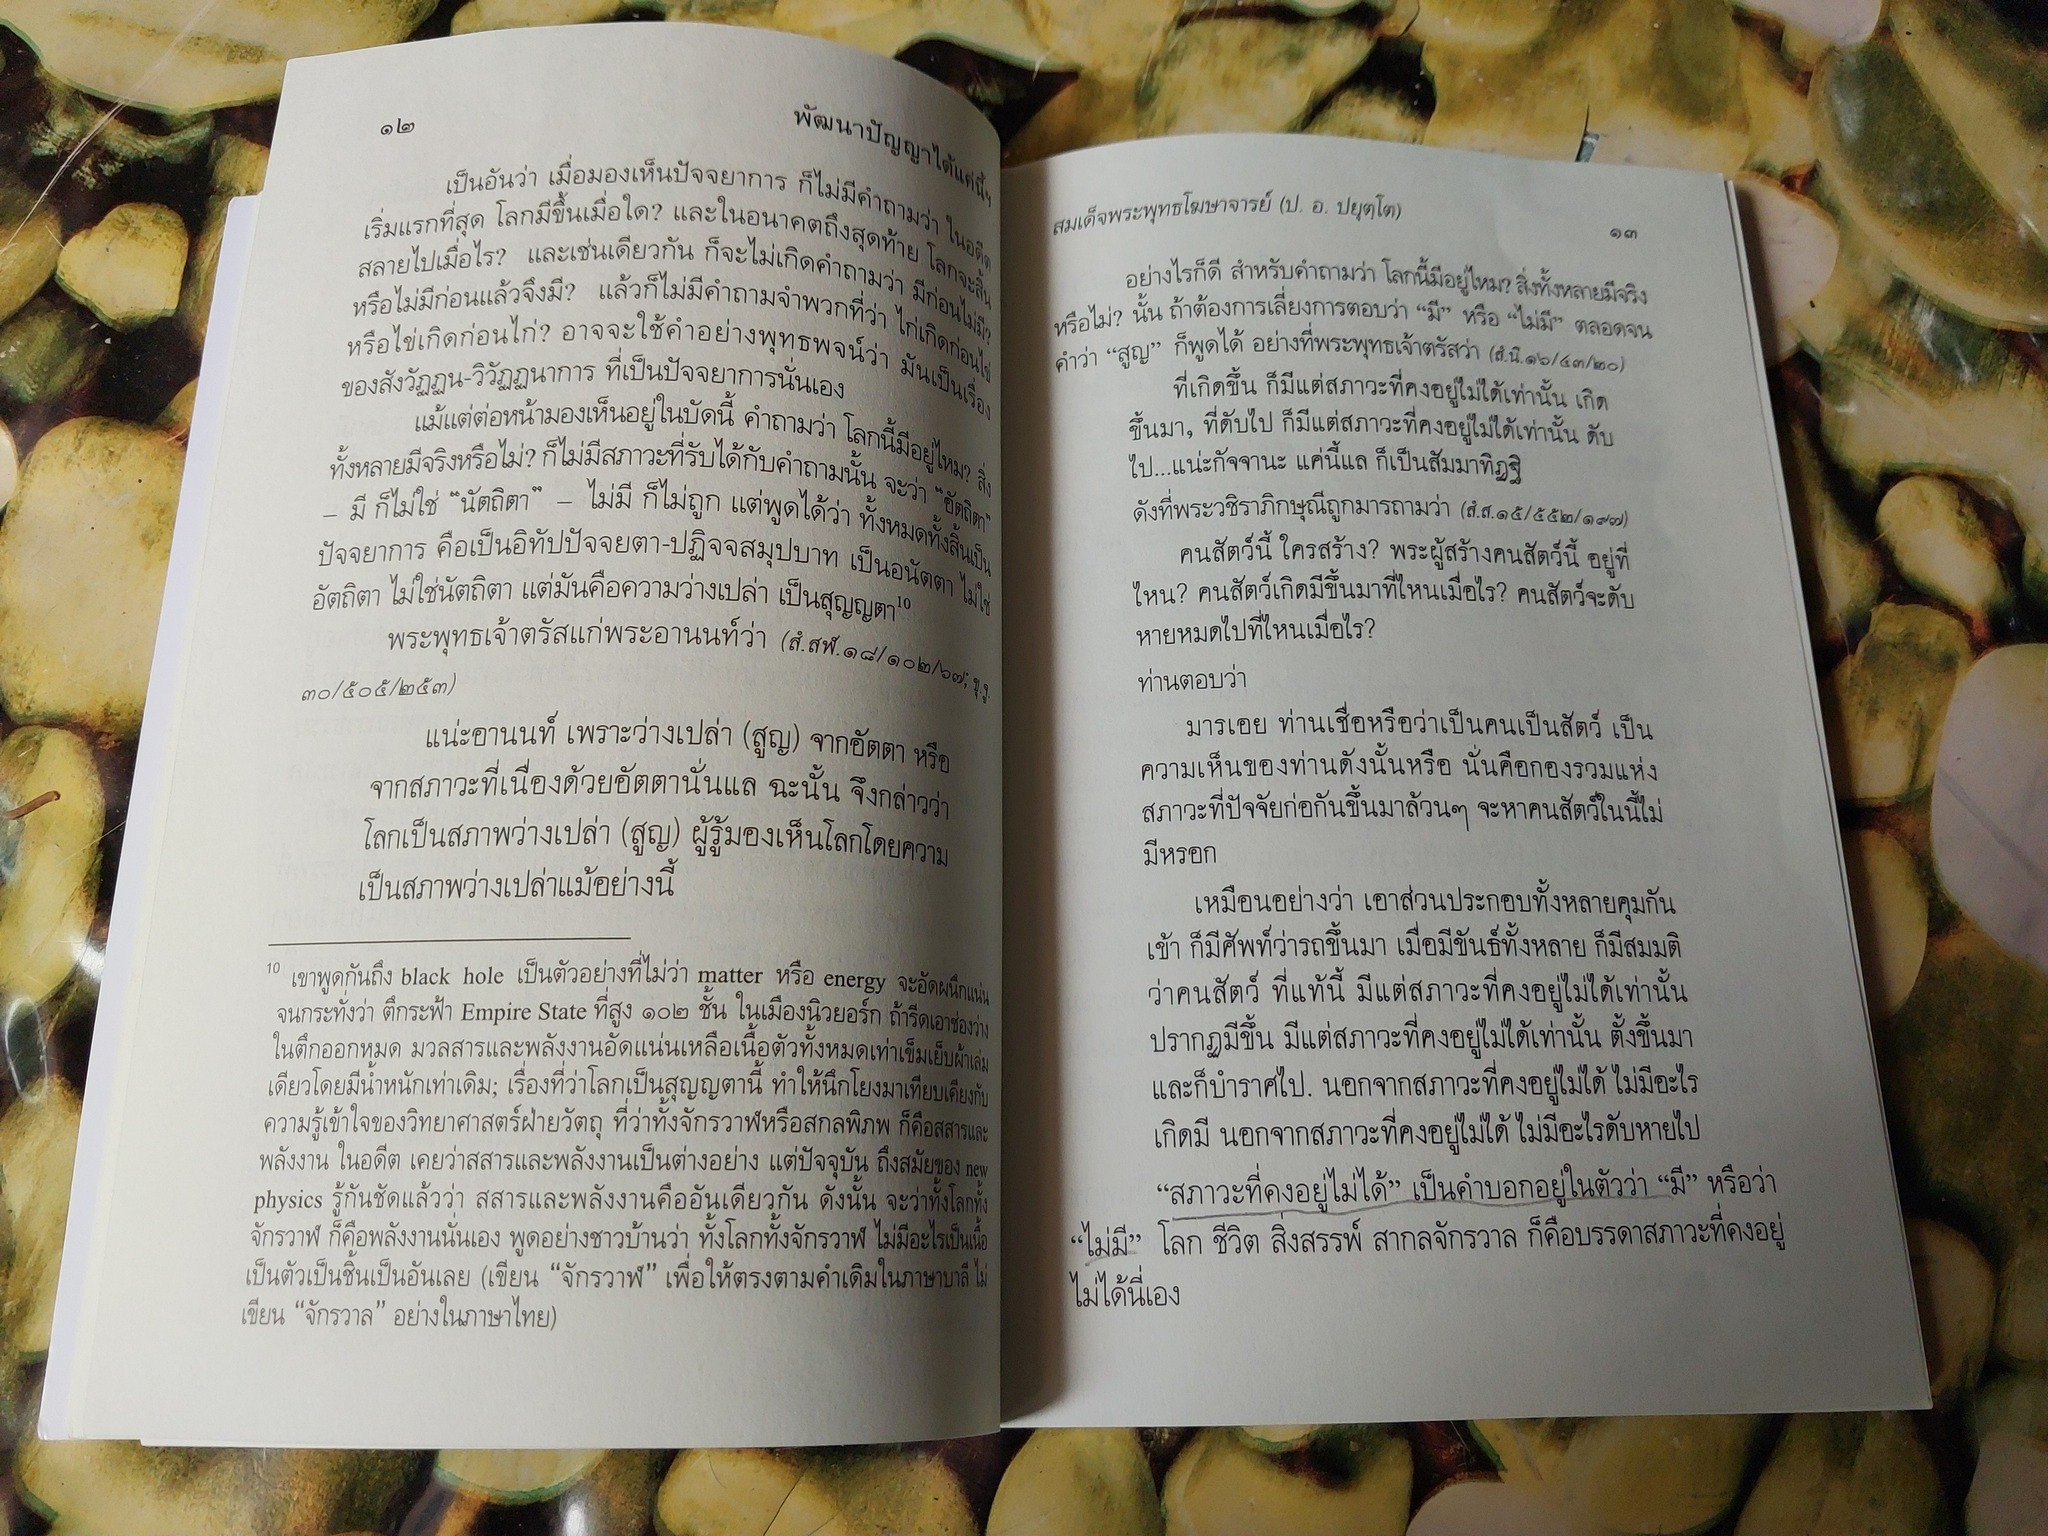 ๑๒
พัฒนาปัญญาได้แต่นี้ฯ
เป็นอันว่า เมื่อมองเห็นปัจจยาการ ก็ไม่มีคำถามว่า ในอดีต
เริ่มแรกที่สุด โลกมีขึ้นเมื่อใด? และในอนาคตถึงสุดท้าย โลกจะสิ้น
สลายไปเมื่อไร? และเช่นเดียวกัน ก็จะไม่เกิดคำถามว่า มีก่อนไม่มี?
หรือไม่มีก่อนแล้วจึงมี? แล้วก็ไม่มีคำถามจำพวกที่ว่า ไก่เกิดก่อนไข่
หรือไข่เกิดก่อนไก่? อาจจะใช้คำอย่างพุทธพจน์ว่า มันเป็นเรื่อง
ของสังวัฏฏน-วิวัฏฏนาการ ที่เป็นปัจจยาการนั่นเอง
แม้แต่ต่อหน้ามองเห็นอยู่ในบัดนี้ คำถามว่า โลกนี้มีอยู่ไหม? สิ่ง
ทั้งหลายมีจริงหรือไม่? ก็ไม่มีสภาวะที่รับได้กับคำถามนั้น จะว่า “อัตถิตา”
– มี ก็ไม่ใช่ “นัตถิตา” – ไม่มี ก็ไม่ถูก แต่พูดได้ว่า ทั้งหมดทั้งสิ้นเป็น
ปัจจยาการ คือเป็นอิทัปปัจจยตา-ปฏิจจสมุปบาท เป็นอนัตตา ไม่ใช่
อัตถิตา ไม่ใช่นัตถิตา แต่มันคือความว่างเปล่า เป็นสุญญตา10
พระพุทธเจ้าตรัสแก่พระอานนท์ว่า (สํ.สฬ.๑๘/๑๐๒/๖๗; ขุ.จู.
๓๐/๕๐๕/๒๕๓)
แน่ะอานนท์ เพราะว่างเปล่า (สูญ) จากอัตตา หรือ
จากสภาวะที่เนื่องด้วยอัตตานั่นแล ฉะนั้น จึงกล่าวว่า
โลกเป็นสภาพว่างเปล่า (สูญ) ผู้รู้มองเห็นโลกโดยความ
เป็นสภาพว่างเปล่าแม้อย่างนี้
10 เขาพูดกันถึง black hole เป็นตัวอย่างที่ไม่ว่า matter หรือ energy จะอัดผนึกแน่น
จนกระทั่งว่า ตึกระฟ้า Empire State ที่สูง ๑๐๒ ชั้น ในเมืองนิวยอร์ก ถ้ารีดเอาช่องว่าง
ในตึกออกหมด มวลสารและพลังงานอัดแน่นเหลือเนื้อตัวทั้งหมดเท่าเข็มเย็บผ้าเล่ม
เดียวโดยมีน้ำหนักเท่าเดิม; เรื่องที่ว่าโลกเป็นสุญญตานี้ ทำให้นึกโยงมาเทียบเคียงกับ
ความรู้เข้าใจของวิทยาศาสตร์ฝ่ายวัตถุ ที่ว่าทั้งจักรวาฬหรือสกลพิภพ ก็คือสสารและ
พลังงาน ในอดีต เคยว่าสสารและพลังงานเป็นต่างอย่าง แต่ปัจจุบัน ถึงสมัยของ new
physics รู้กันชัดแล้วว่า สสารและพลังงานคืออันเดียวกัน ดังนั้น จะว่าทั้งโลกทั้ง
จักรวาฬ ก็คือพลังงานนั่นเอง พูดอย่างชาวบ้านว่า ทั้งโลกทั้งจักรวาฬ ไม่มีอะไรเป็นเนื้อ
เป็นตัวเป็นชิ้นเป็นอันเลย (เขียน “จักรวาฬ” เพื่อให้ตรงตามคำเดิมในภาษาบาลี ไม่
เขียน “จักรวาล” อย่างในภาษาไทย)
สมเด็จพระพุทธโฆษาจารย์ (ป. อ. ปยุตฺโต)
๑๓
อย่างไรก็ดี สำหรับคำถามว่า โลกนี้มีอยู่ไหม? สิ่งทั้งหลายมีจริง
หรือไม่? นั้น ถ้าต้องการเลี่ยงการตอบว่า “มี” หรือ “ไม่มี” ตลอดจน
คำว่า “สูญ” ก็พูดได้ อย่างที่พระพุทธเจ้าตรัสว่า (สํ.นิ.๑๖/๔๓/๒๐)
ที่เกิดขึ้น ก็มีแต่สภาวะที่คงอยู่ไม่ได้เท่านั้น เกิด
ขึ้นมา, ที่ดับไป ก็มีแต่สภาวะที่คงอยู่ไม่ได้เท่านั้น ดับ
ไป...แน่ะกัจจานะ แค่นี้แล ก็เป็นสัมมาทิฏฐิ
ดังที่พระวชิราภิกษุณีถูกมารถามว่า (สํ.ส.๑๕/๕๕๒/๑๙๗)
คนสัตว์นี้ ใครสร้าง? พระผู้สร้างคนสัตว์นี้ อยู่ที่
ไหน? คนสัตว์เกิดมีขึ้นมาที่ไหนเมื่อไร? คนสัตว์จะดับ
หายหมดไปที่ไหนเมื่อไร?
ท่านตอบว่า
มารเอย ท่านเชื่อหรือว่าเป็นคนเป็นสัตว์ เป็น
ความเห็นของท่านดังนั้นหรือ นั่นคือกองรวมแห่ง
สภาวะที่ปัจจัยก่อกันขึ้นมาล้วนๆ จะหาคนสัตว์ในนี้ไม่
มีหรอก
เหมือนอย่างว่า เอาส่วนประกอบทั้งหลายคุมกัน
เข้า ก็มีศัพท์ว่ารถขึ้นมา เมื่อมีขันธ์ทั้งหลาย ก็มีสมมติ
ว่าคนสัตว์ ที่แท้นี้ มีแต่สภาวะที่คงอยู่ไม่ได้เท่านั้น
ปรากฏมีขึ้น มีแต่สภาวะที่คงอยู่ไม่ได้เท่านั้น ตั้งขึ้นมา
และก็บำราศไป. นอกจากสภาวะที่คงอยู่ไม่ได้ ไม่มีอะไร
เกิดมี นอกจากสภาวะที่คงอยู่ไม่ได้ ไม่มีอะไรดับหายไป
“สภาวะที่คงอยู่ไม่ได้” เป็นคำบอกอยู่ในตัวว่า “มี” หรือว่า
“ไม่มี” โลก ชีวิต สิ่งสรรพ์ สากลจักรวาล ก็คือบรรดาสภาวะที่คงอยู่
ไม่ได้นี่เอง